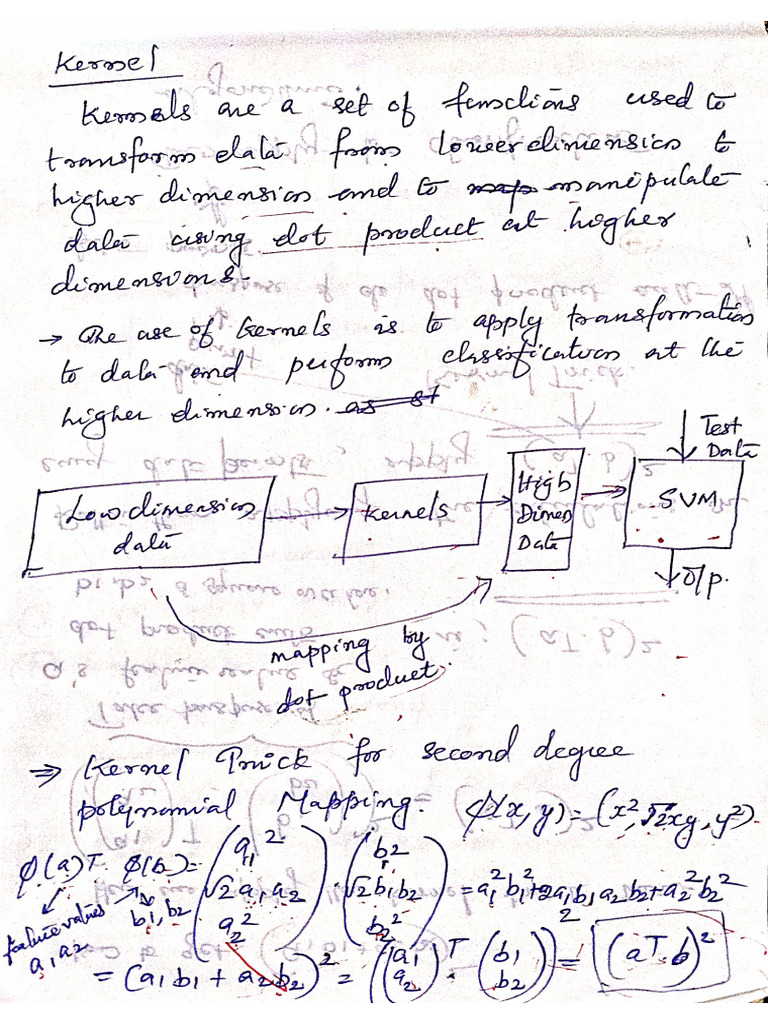 Kernel
Kernels are a set of functions used to
transform data from lower dimension to
higher dimension and to map manipulate
data using dot product at higher
dimensions.
→ The use of kernels is to apply transformation
to data and perform classification at the
higher dimension. as st
Test
Data
Low dimension
data
Kernels
High
Dimen
Data
SVM
O/p.
mapping by
dot product.
⇒ Kernel Trick for second degree
polynomial Mapping. φ(x, y) = (x², √2xy, y²).
φ(a)T. φ(b) = (a₁² √2a₁a₂ a₂²) (b₁² √2b₁b₂ b₂²) = a₁²b₁² + 2a₁b₁a₂b₂ + a₂²b₂²
feature values
a₁ a₂
b₁, b₂
= (a₁b₁ + a₂b₂)² = ((a₁ a₂)T . (b₁ b₂))² = (aT. b)²